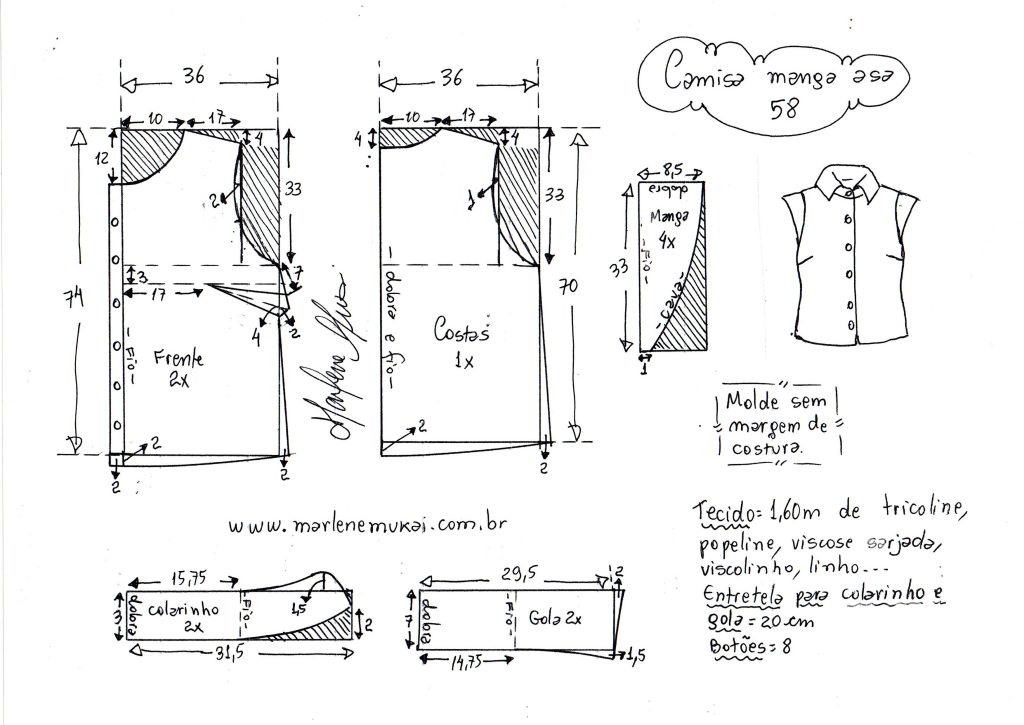 Camisa manga asa
58
36
10
17
12
4
33
2
3
17
7
4
2
74
- Fio -
Frente
2x
2
2
2
36
10
17
4
4
33
1
70
- dobra e fio -
Costas
1x
2
2
Marlene Mukai
8,5
dobra
Manga
4x
- Fio -
- cava -
33
1
Molde sem
margem de
costura.
www.marlenemukai.com.br
Tecido= 1,60m de tricoline,
popeline, viscose sarjada,
viscolinho, linho...
Entretela para colarinho e
gola = 20cm
Botões= 8
15,75
3
dobra
colarinho
2x
- Fio -
1,5
2
31,5
29,5
2
7
dobra
- Fio -
Gola 2x
14,75
1,5